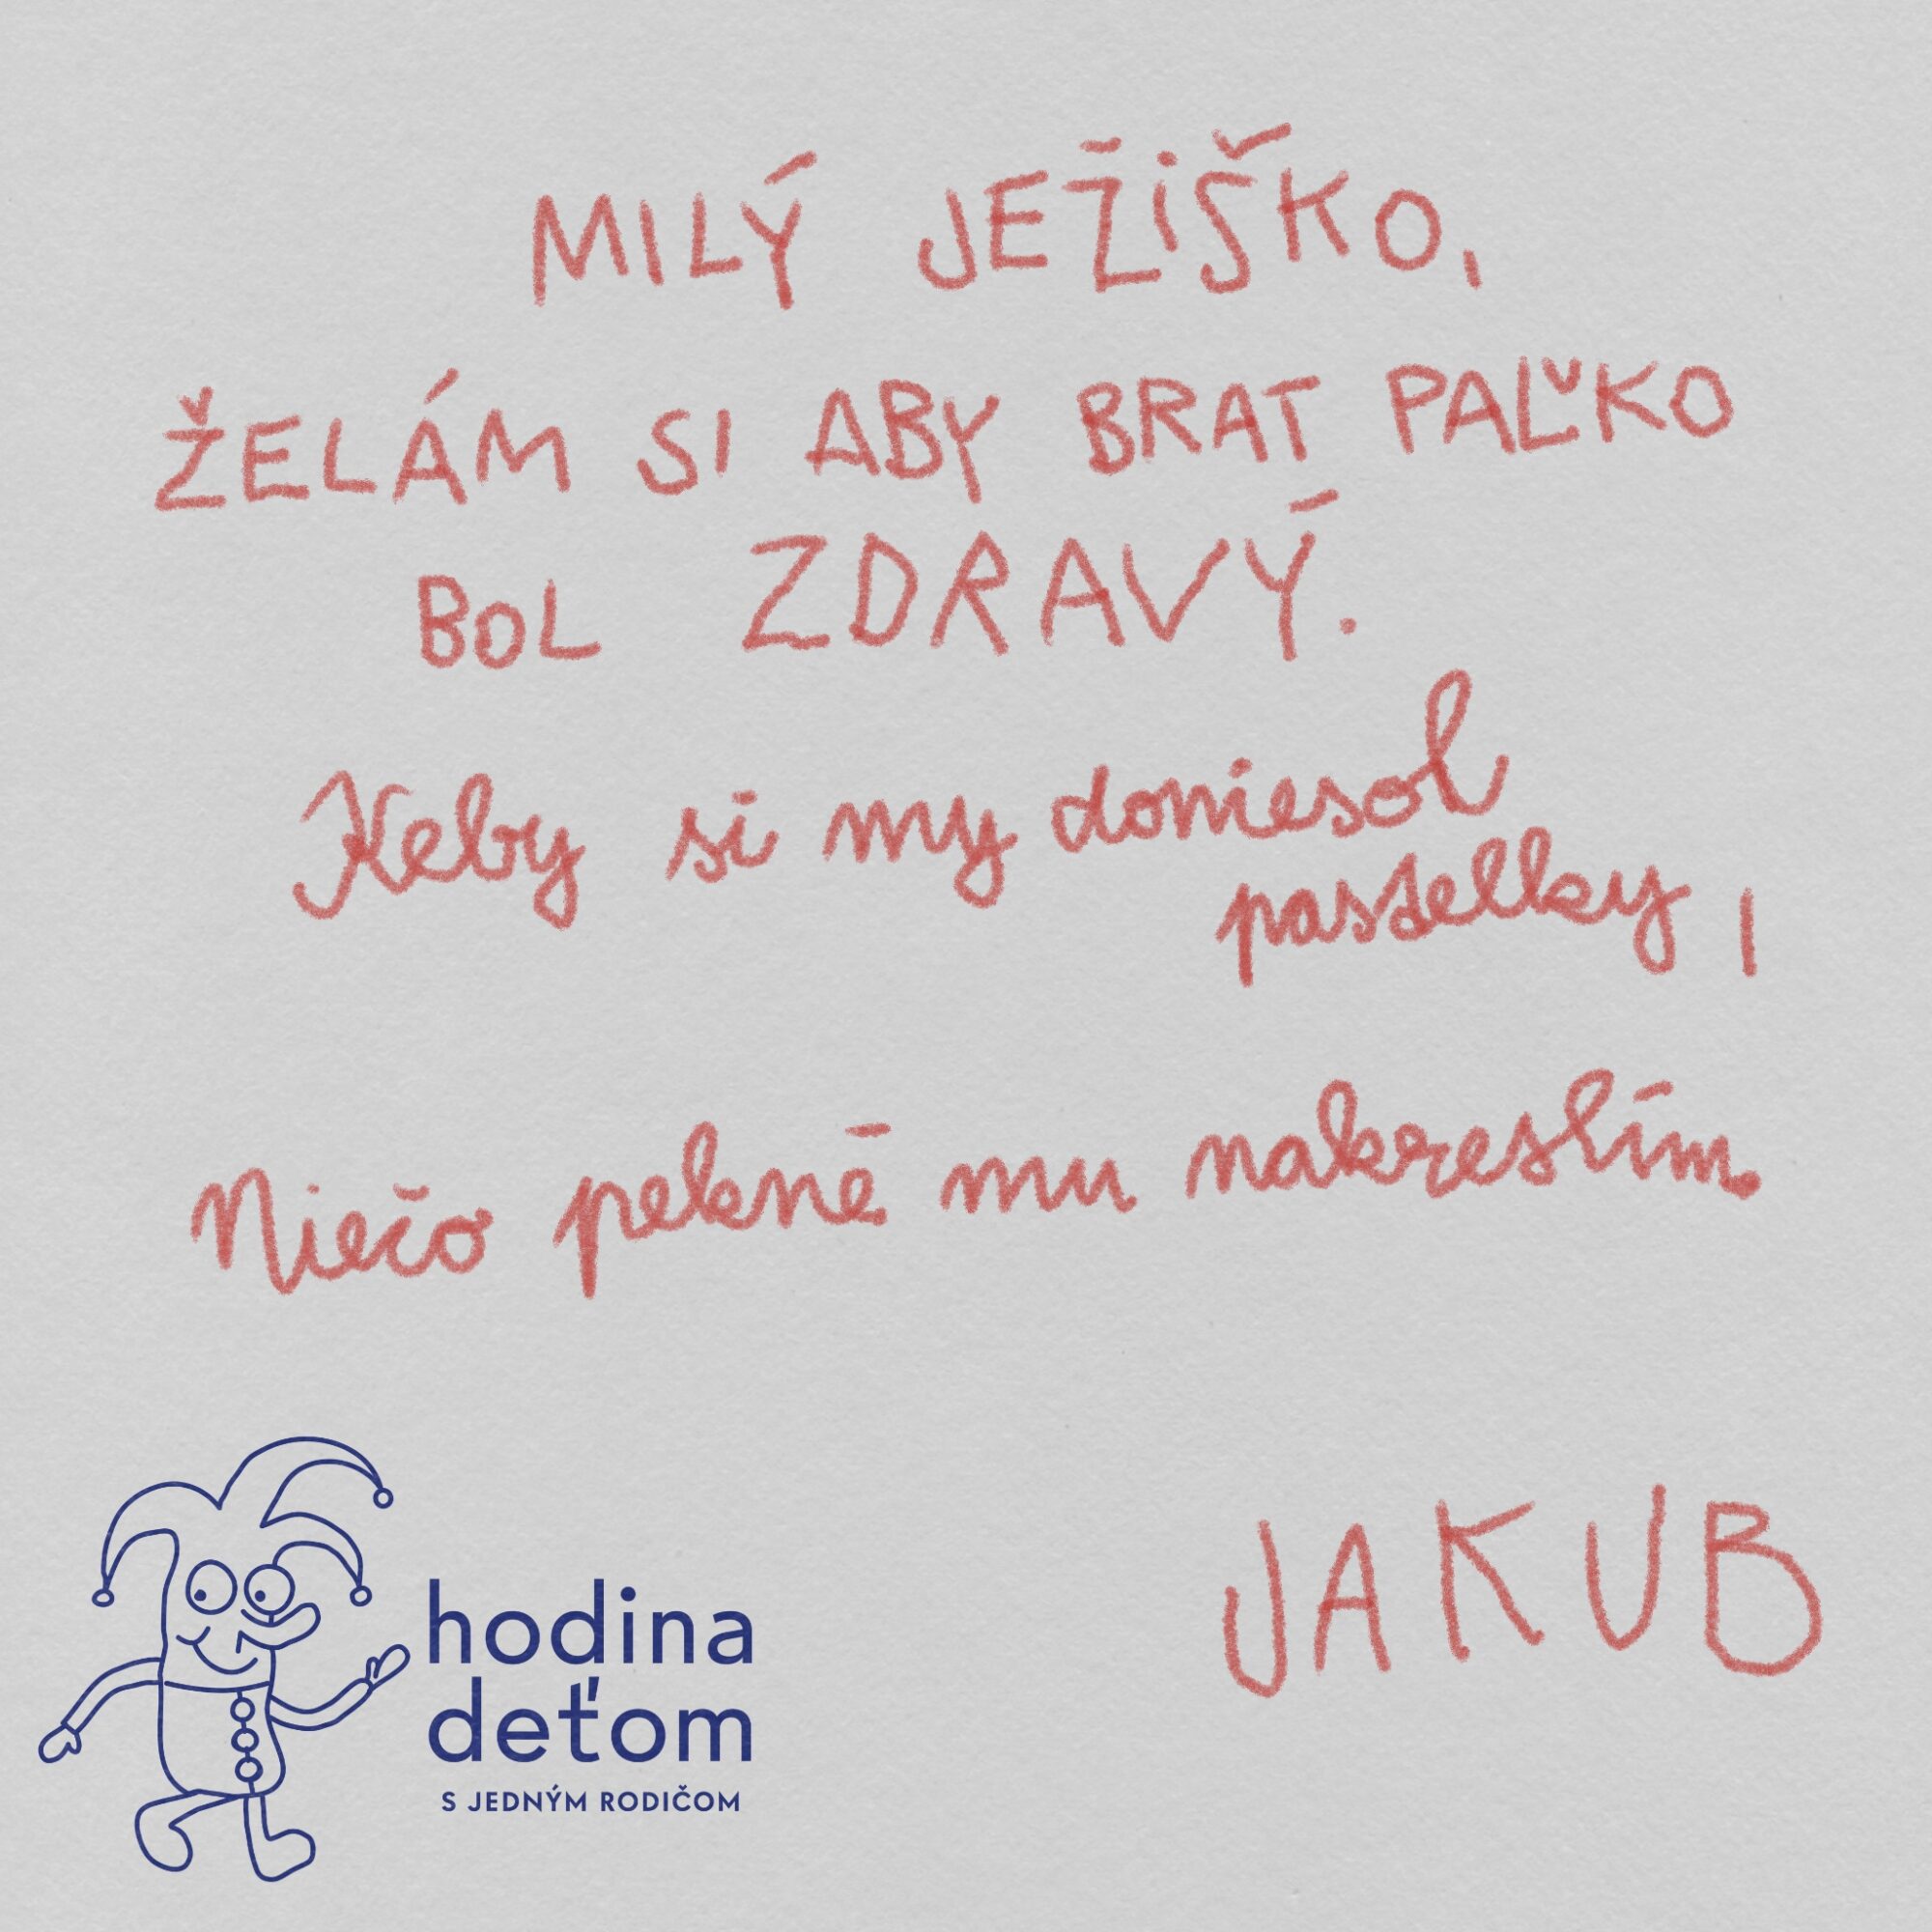 MILÝ JEŽIŠKO,
ŽELÁM SI ABY BRAT PAĽKO
BOL ZDRAVÝ.
Keby si my doniesol
pastelky,
Niečo pekné mu nakreslím.
JAKUB
hodina
deťom
S JEDNÝM RODIČOM